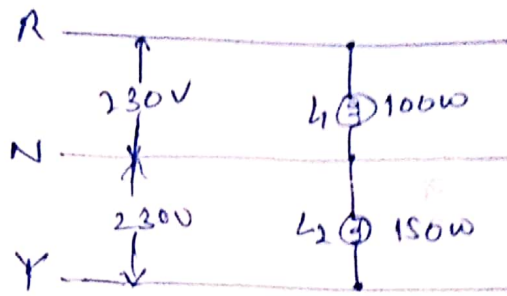 R
230V
L1 100W
N
230V
L2 150W
Y